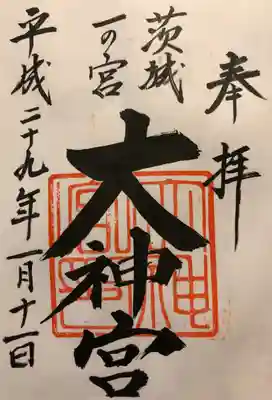 奉拝
茨城
一の宮
大神宮
平成二十九年一月十一日